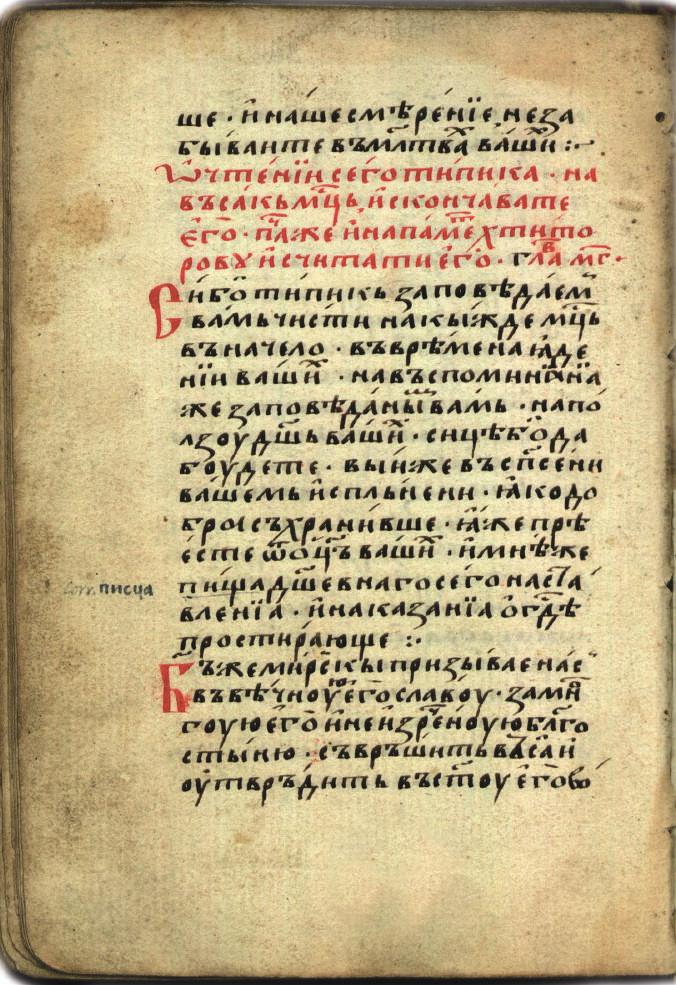 ше · и҆ наше смѣре́нїе не за
быванте въ мл҃тва́х ва́ши́х :·
Ѡ҆ чте́нїи сего̀ ти́пика · на
въса́къ мц҃ь, и҆сконча́вате
є҆го̀ · па́ же и҆ на па́ме хтито
ровꙋ и҆считати є҆го̀ · гла́в м҃г ·
Си́ бѡ̀ ти́пикь заповѣ́дае́м
вамь чисти на кы́жде мц҃ь
въ начело · въ врѣ́ме на ꙗ҆де
нїи ва́ши́х · на въспоминанїа
же заповѣ́даны́х вамь · на по́
лзоу дш҃ь ва́ши́х · сицѣ бо̀ да
боудете · вы́ и҆же въ сп҃се́ни
вашемь и҆спльнени · ꙗ҆ко до
брѡ съхрани́вше · ꙗ҆́же прѣ
е́сте ѿ ѻ҆ц҃ъ ва́ши́х · и҆ мнѣ́ же
пища дш҃евнаго сего̀ наста́
вленїа · и҆ наказа́нїа ѻ҆гдѣ
прострира́юще :·
Бъ҃ же ми́рски призы́вае на́с
въ вѣ́чноую є҆го̀ славоу · за мн҃ѡ
гоую є҆го̀ и҆ неи́зре́ноую бл҃го
стыню · съврьши́ть въ сїа̀ и҆
оу҆твръди́ть въ ст҃оу є҆го̀ во́
Corr. писца